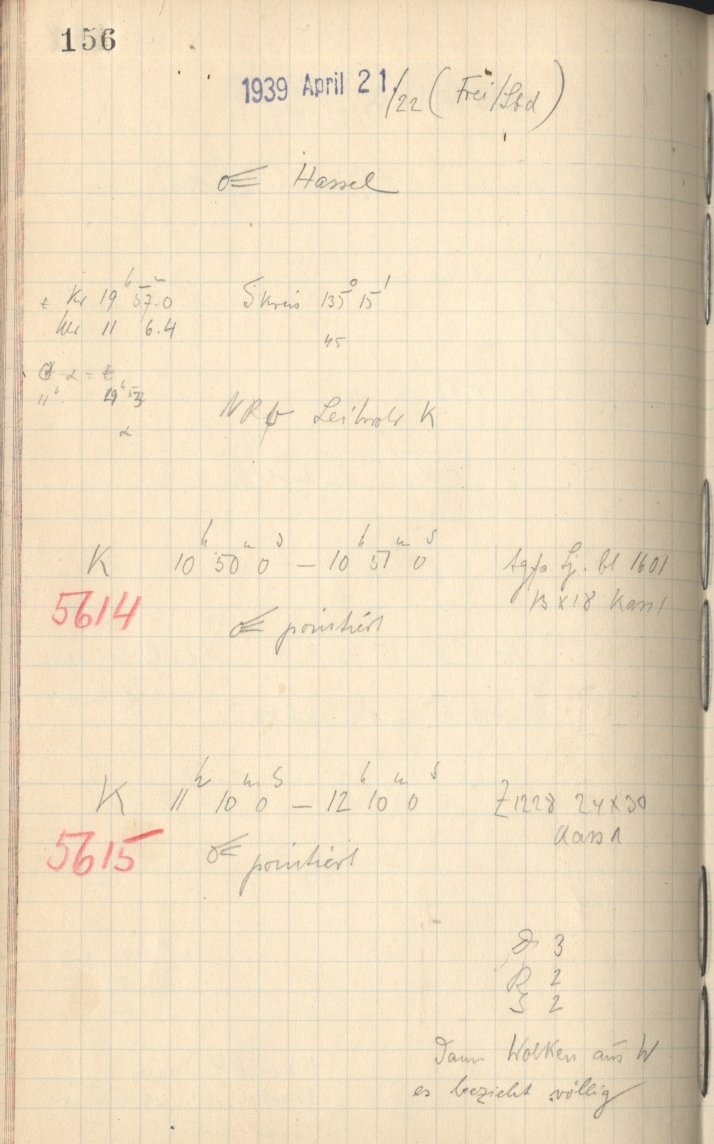 156
1939 April 21./22 (Frei/Sbd)
☄ Hassel
t Kr 19ʰ 57ᵐ.0 Skreis 135° 15'
Wr 11 6.4 45
α = t
11ʰ 19ʰ 53
α
Leitrohr K
K 10ʰ 50ᵐ 0ˢ – 10ʰ 51ᵐ 0ˢ Agfa 1601
5614 13 x 18 Kass 1
☄ pointiert
K 11ʰ 10ᵐ 0ˢ – 12ʰ 10ᵐ 0ˢ Z 1228 24 x 30
Kass 1
5615 ☄ pointiert
D 3
R 2
S 2
Dann Wolken aus W
es bezieht völlig